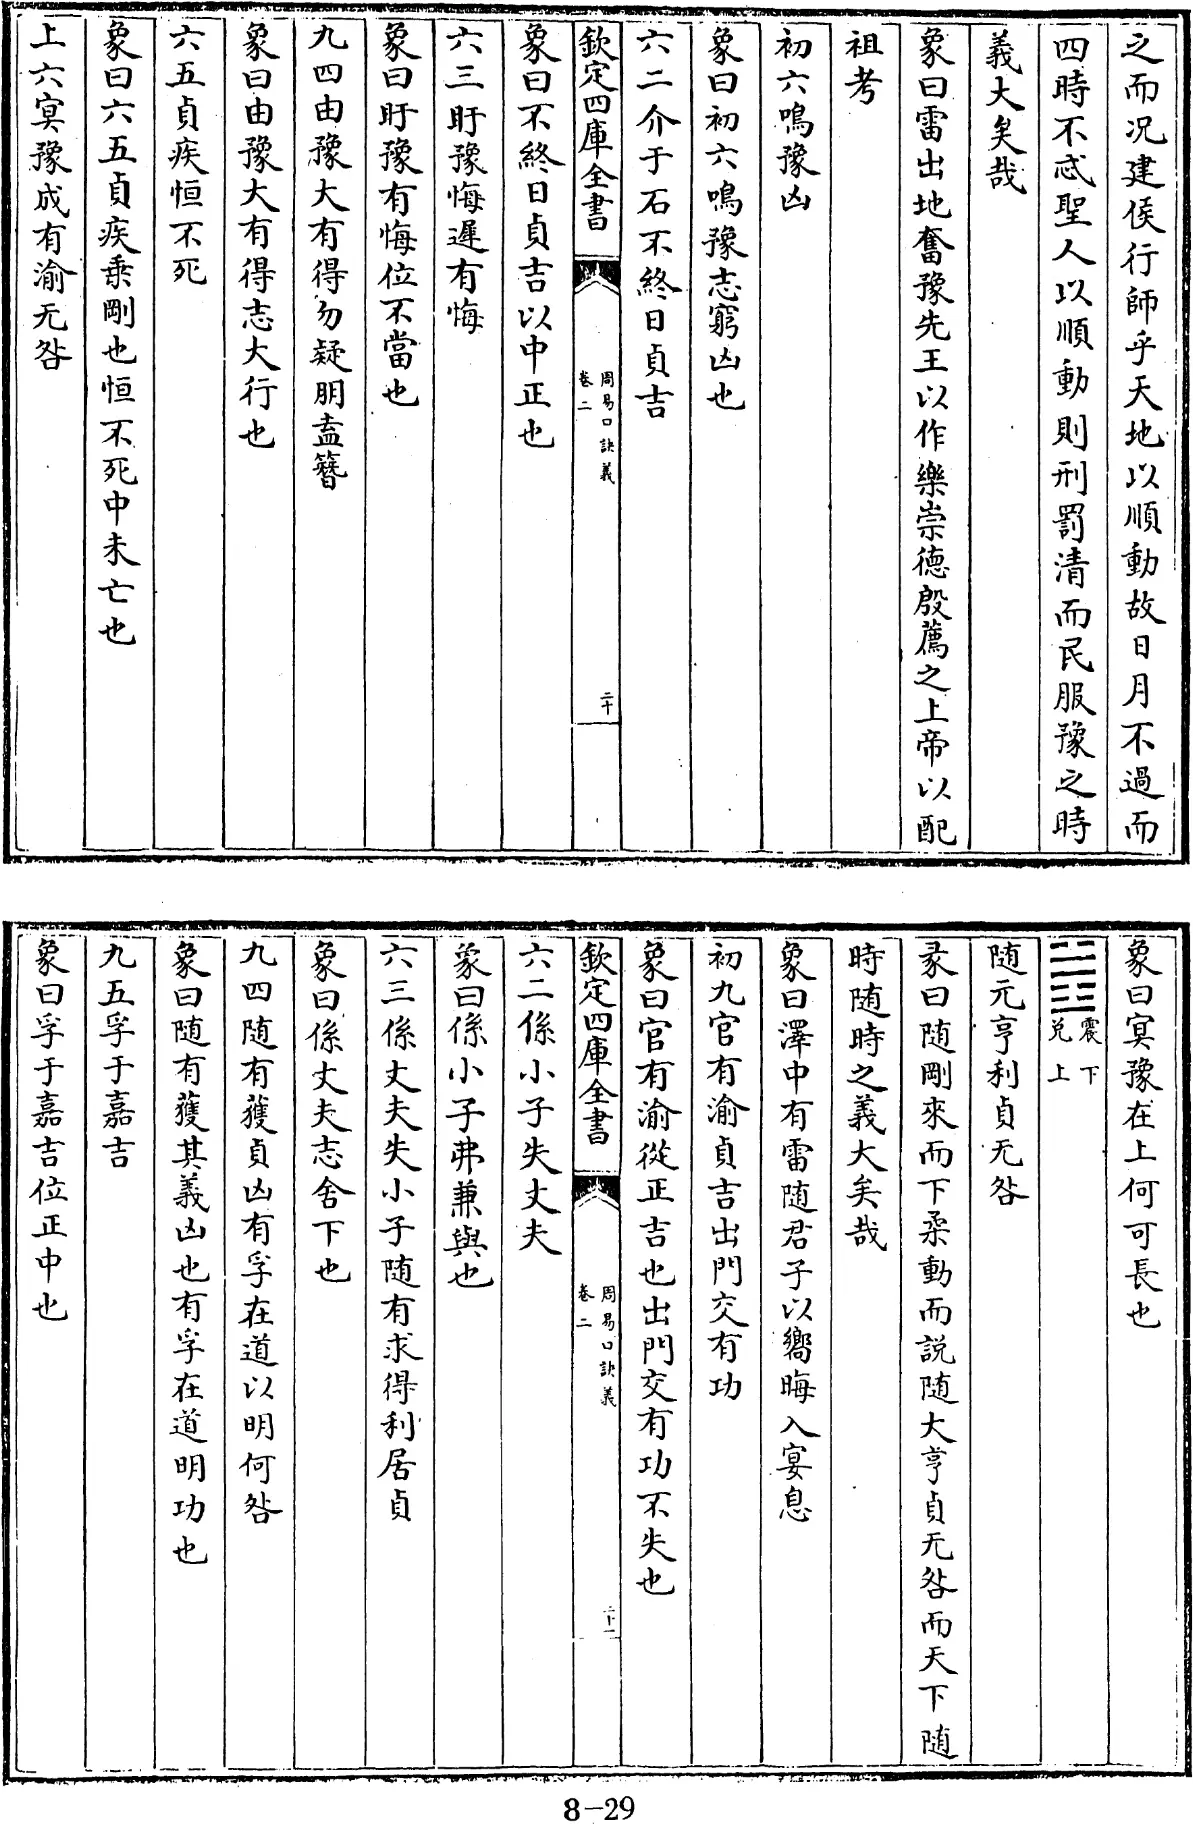 之而况建侯行師乎天地以順動故日月不過而
四時不忒聖人以順動則刑罰清而民服豫之時
義大矣哉
象曰雷出地奮豫先王以作樂崇德殷薦之上帝以配
祖考
初六鳴豫凶
象曰初六鳴豫志窮凶也
六二介于石不終日貞吉
欽定四庫全書
周易口訣義
卷二
二十
象曰不終日貞吉以中正也
六三盱豫悔遲有悔
象曰盱豫有悔位不當也
九四由豫大有得勿疑朋盍簪
象曰由豫大有得志大行也
六五貞疾恒不死
象曰六五貞疾乗剛也恒不死中未亡也
上六冥豫成有渝无咎
象曰冥豫在上何可長也
震下
兌上
随元亨利貞无咎
彖曰随剛來而下柔動而説随大亨貞无咎而天下随
時随時之義大矣哉
象曰澤中有雷随君子以嚮晦入宴息
初九官有渝貞吉出門交有功
象曰官有渝從正吉也出門交有功不失也
欽定四庫全書
周易口訣義
卷二
二十一
六二係小子失丈夫
象曰係小子弗兼與也
六三係丈夫失小子随有求得利居貞
象曰係丈夫志舍下也
九四随有獲貞凶有孚在道以明何咎
象曰随有獲其義凶也有孚在道明功也
九五孚于嘉吉
象曰孚于嘉吉位正中也
8-29